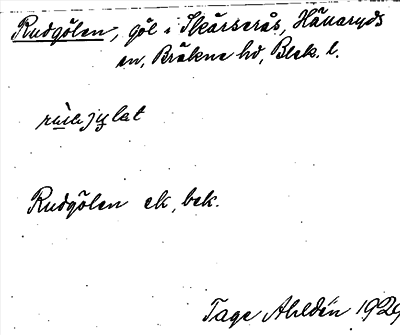 Rudgölen, göl i Skårserås, Hällaryds
sn, Bräkne hd, Blek. l.
Rudgölen ek, bek.
Tage Ahldén 1929